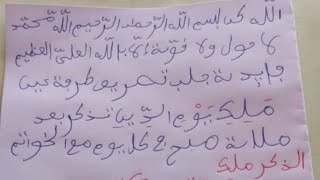 الله كل بسم الله الرحمن الرحيم الله محمد
لا حول ولا قوة الا بالله العلي العظيم
فايدة جلب تصريف طرفة عين
مَلِكِ يَوْمِ الدِّينِ تذكر بعد
صلاة صبح كل يوم مع الخواتم
الذكر ملك